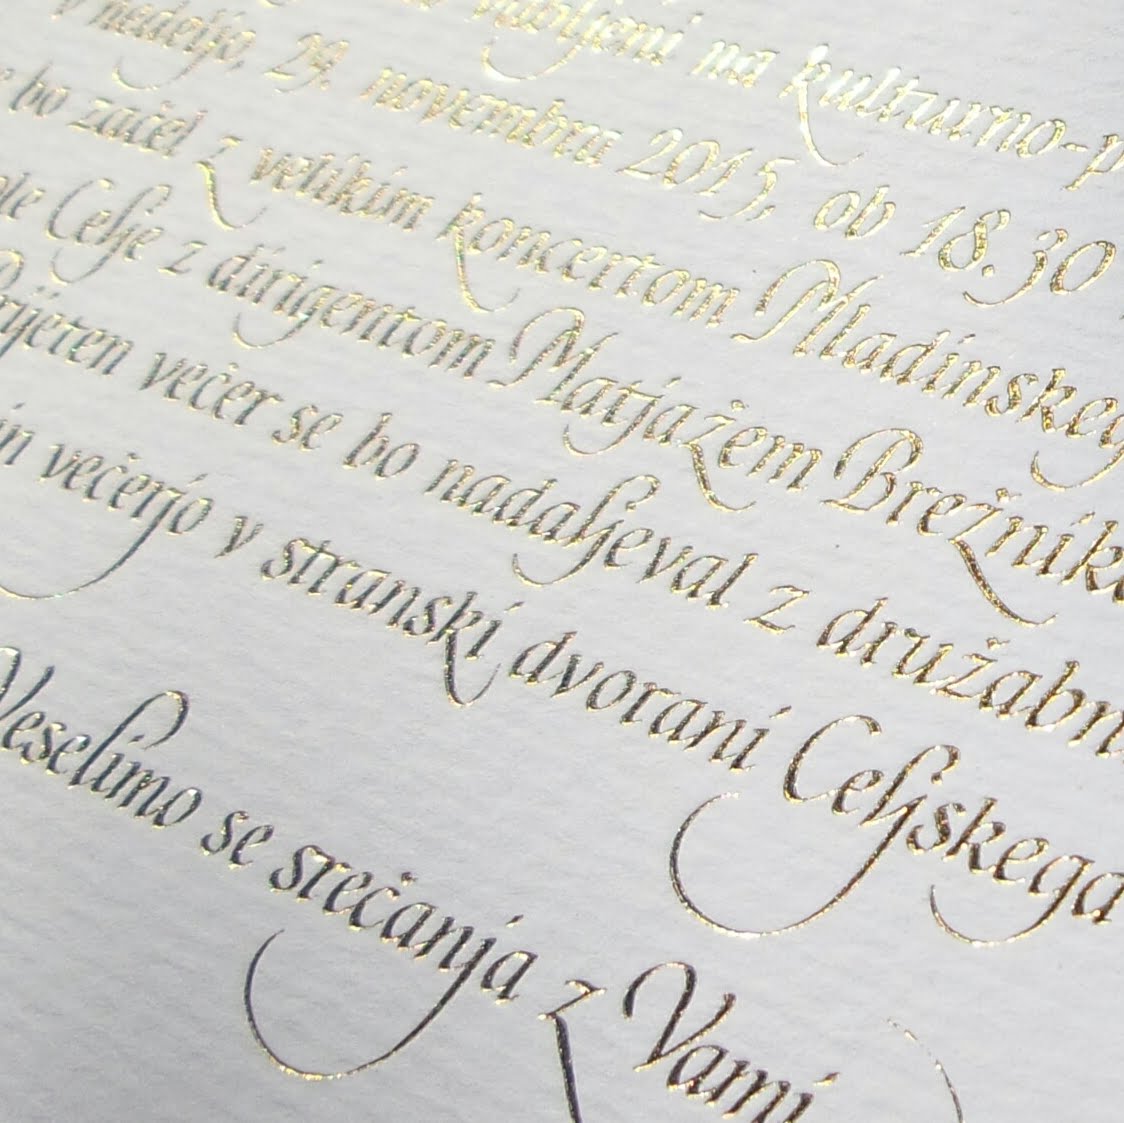 vabljeni na kulturno-p
v nedeljo, 29. novembra 2015, ob 18.30
bo začel z velikim koncertom Mladinskeg
ole Celje z dirigentom Matjažem Brežnik
Prijeten večer se bo nadaljeval z družabn
in večerjo v stranski dvorani Celjskega
Veselimo se srečanja z Vami